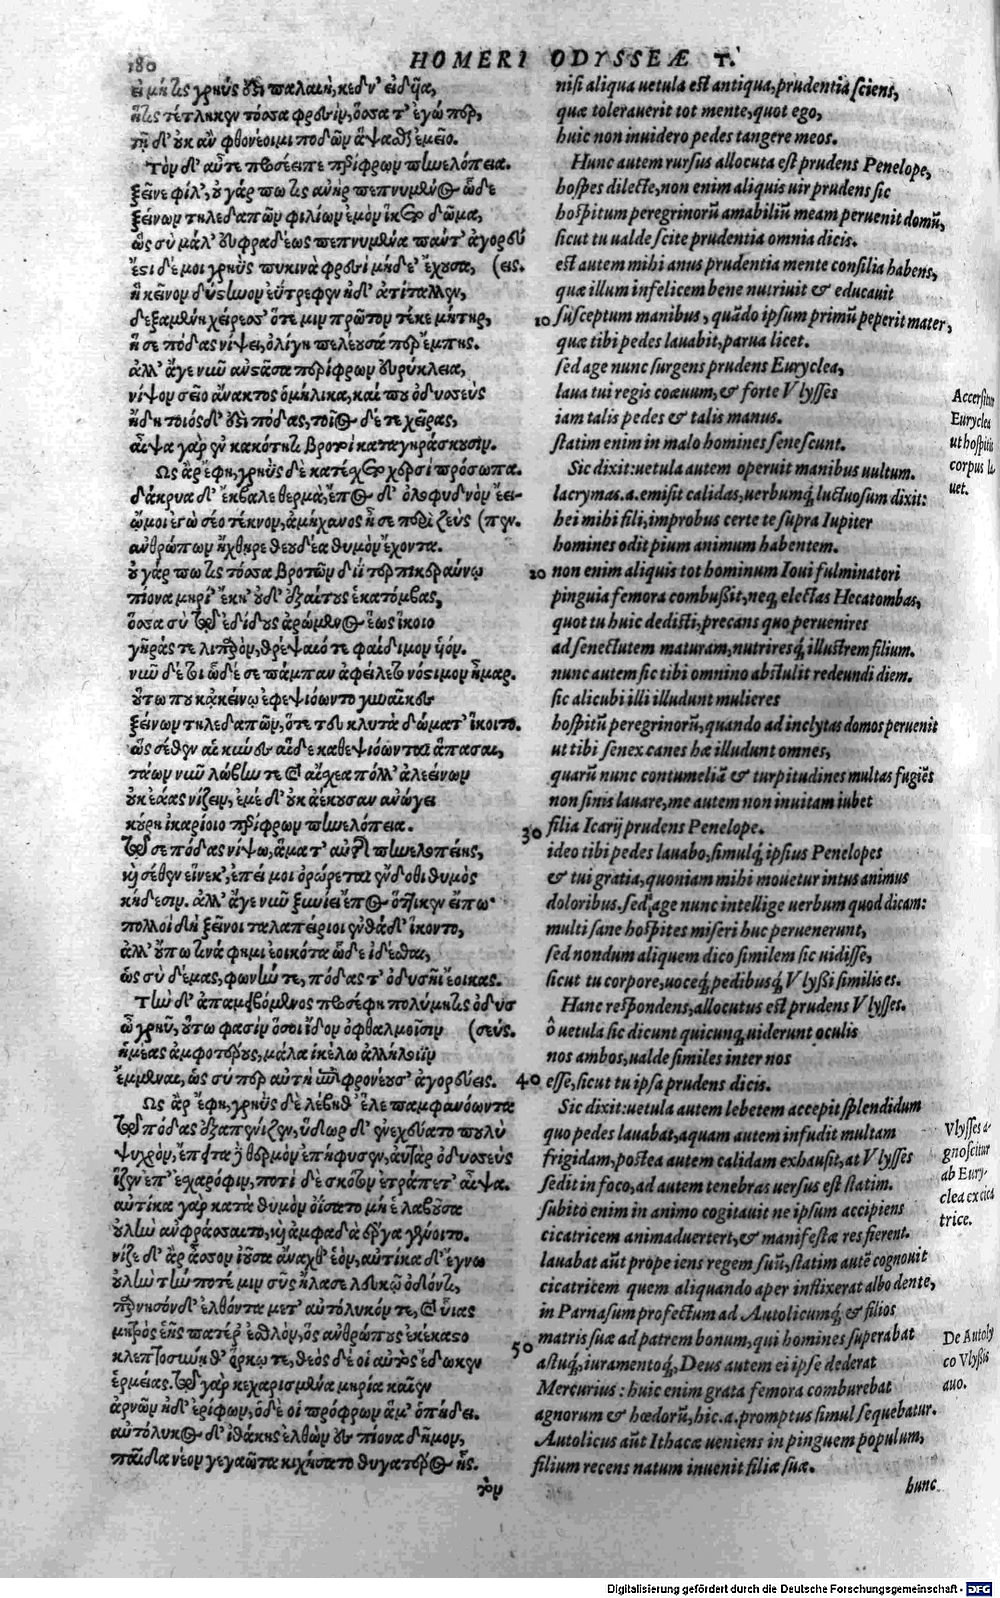 180 HOMERI ODYSSEÆ T.
εἰ μή τις γρηῦς ἐστι παλαιὴ, κεδν' εἰδυῖα,
ἥτις τέτληκεν τόσσα φρεσὶν, ὅσσα τ' ἐγώ περ,
τῇ δ' οὐκ ἂν φθονέοιμι ποδῶν ἅψασθαι ἐμεῖο.
Τὸν δ' αὖτε προσέειπε περίφρων πηνελόπεια.
ξεῖνε φίλ', οὐ γάρ πω τις ἀνὴρ πεπνυμένος ὧδε
ξείνων τηλεδαπῶν φιλίων ἐμὸν ἵκετο δῶμα,
ὡς σὺ μάλ' εὐφραδέως πεπνυμένα πάντ' ἀγορεύ
ἔστι δέ μοι γρηῦς πυκινὰ φρεσὶ μήδε' ἔχουσα, (εις.
ἣ κεῖνον δύστηνον εὖ τρεφεν ἠδ' ἀτίταλλεν,
δεξαμένη χείρεσσ' ὅτε μιν πρῶτον τέκε μήτηρ,
ἥ σε πόδας νίψει, ὀλίγη πελέουσά περ ἔμπης.
ἀλλ' ἄγε νῦν ἀνστᾶσα περίφρων εὐρύκλεια,
νίψον σεῖο ἄνακτος ὁμήλικα, καί που ὀδυσσεὺς
ἤδη τοιόσδ' ἐστὶ πόδας, τοιόςδε τε χεῖρας,
αἶψα γὰρ ἐν κακότητι βροτοὶ καταγηράσκουσιν.
Ως ἄρ' ἔφη, γρηῢς δὲ κατέσχετο χερσὶ πρόσωπα.
δάκρυα δ' ἔκβαλε θερμὰ, ἔπος δ' ὀλοφυδνὸν ἔει-
ᾤμοι ἐγὼ σέο τέκνον, ἀμήχανος ἦ σε περὶ ζεὺς (πεν.
ἀνθρώπων ἤχθηρε θεουδέα θυμὸν ἔχοντα.
οὐ γάρ πω τις τόσσα βροτῶν διῒ τερπικεραύνῳ
πίονα μηρί' ἔκη' οὐδ' ἐξαίτους ἑκατόμβας,
ὅσσα σὺ τῷ ἐδίδους ἀρώμενος ἕως ἵκοιο
γῆράς τε λιπαρὸν, θρέψαιό τε φαίδιμον υἱόν.
νῦν δέ τοι ὧδέ σε πάμπαν ἀφείλετο νόστιμον ἦμαρ.
οὕτω που κακείνῳ ἐφεψιόωντο γυναῖκες
ξείνων τηλεδαπῶν, ὅτε τευ κλυτὰ δώματ' ἵκοιτο.
ὡς σέθεν αἱ κύνες αἵδε καθεψιόωνται ἅπασαι,
τάων νῦν λώβην τε καὶ αἴσχεα πόλλ' ἀλεείνων
οὐκ ἐάας νίζειν, ἐμὲ δ' οὐκ ἀέκουσαν ἀνώγει
κούρη ἰκαρίοιο περίφρων πηνελόπεια.
τῷ σε πόδας νίψω, ἅμα τ' αὐτῆς πηνελοπείης,
καὶ σέθεν εἵνεκ', ἐπεί μοι ὀρώρεται ἔνδοθι θυμὸς
κήδεσιν. ἀλλ' ἄγε νῦν ξυνίει ἔπος ὅττικεν εἴπω·
πολλοὶ δὴ ξεῖνοι ταλαπείριοι ἐνθάδ' ἵκοντο,
ἀλλ' οὔπω τινά φημι ἐοικότα ὧδε ἰδέσθαι,
ὡς σὺ δέμας, φωνήν τε, πόδας τ' ὀδυσῆϊ ἔοικας.
Τὴν δ' ἀπαμειβόμενος προσέφη πολύμητις ὀδυσ
ὦ γρηῦ, οὕτω φασὶν ὅσοι ἴδον ὀφθαλμοῖσιν (σεύς.
ἡμέας ἀμφοτέρους, μάλα ἰκέλω ἀλλήλοιϊν
ἔμμεναι, ὡς σύ περ αὐτὴ ἐπιφρονέουσ' ἀγορεύεις.
Ως ἄρ' ἔφη, γρηῢς δὲ λέβηθ' ἕλε παμφανόωντα
τῷ πόδας ἐξαπένιζεν, ὕδωρ δ' ἐνεχεύατο πουλὺ
ψυχρὸν, ἔπειτα δὲ θερμὸν ἐπήφυσεν, αὐτὰρ ὀδυσσεὺς
ἷζεν ἐπ' ἐσχαρόφιν, ποτὶ δὲ σκότον ἐτράπετ' αἶψα.
αὐτίκα γὰρ κατὰ θυμὸν ὀΐσατο μή ἑ λαβοῦσα
οὐλὴν ἀμφράσσαιτο, καὶ ἀμφαδὰ ἔργα γένοιτο.
νίζε δ' ἄρ' ἆσσον ἰοῦσα ἄναχθ' ἑὸν, αὐτίκα δ' ἔγνω
οὐλὴν τήν ποτέ μιν σῦς ἤλασε λευκῷ ὀδόντι,
παρνησόνδ' ἐλθόντα μετ' αὐτόλυκόν τε, καὶ υἷας
μητρὸς ἑῆς πατέρ' ἐσθλὸν, ὃς ἀνθρώπους ἐκέκαστο
κλεπτοσύνῃ θ' ὅρκῳ τε, θεὸς δέ οἱ αὐτὸς ἔδωκεν
ἑρμείας. τῷ γὰρ κεχαρισμένα μηρία καῖεν
ἀρνῶν ἠδ' ἐρίφων, ὁ δέ οἱ πρόφρων ἅμ' ὀπήδει.
αὐτόλυκος δ' ἰθάκης ἐλθὼν ἐς πίονα δῆμον,
παῖδα νέον γεγαῶτα κιχήσατο θυγατέρος ἧς.
τὸν
nisi aliqua uetula est antiqua, prudentiã sciens,
quæ tolerauerit tot mente, quot ego,
huic non inuidero pedes tangere meos.
Hunc autem rursus allocuta est prudens Penelope,
hospes dilecte, non enim aliquis uir prudens sic
hospitum peregrinorũ amabiliũ meam peruenit domũ,
sicut tu ualde scite prudentia omnia dicis.
est autem mihi anus prudentia mente consilia habens,
quæ illum infelicem bene nutriuit & educauit
10 susceptum manibus, quãdo ipsum primũ peperit mater,
quæ tibi pedes lauabit, parua licet.
sed age nunc surgens prudens Euryclea,
laua tui regis coæuum, & forte Vlysses
iam talis pedes & talis manus.
statim enim in malo homines senescunt.
Sic dixit: uetula autem operuit manibus uultum.
lacrymas.a.emisit calidas, uerbumq́; luctuosum dixit:
hei mihi fili, improbus certe te supra Iupiter
homines odit pium animum habentem.
20 non enim aliquis tot hominum Ioui fulminatori
pinguia femora combußit, neq; electas Hecatombas,
quot tu huic dedisti, precans quo peruenires
ad senectutem maturam, nutriresq́; illustrem filium.
nunc autem sic tibi omnino abstulit redeundi diem.
sic alicubi illi illudunt mulieres
hospitũ peregrinorũ, quando ad inclytas domos peruenit
ut tibi senex canes hæ illudunt omnes,
quarũ nunc contumeliã & turpitudines multas fugiẽs
non sinis lauare, me autem non inuitam iubet
30 filia Icarij prudens Penelope.
ideo tibi pedes lauabo, simulq́; ipsius Penelopes
& tui gratia, quoniam mihi mouetur intus animus
doloribus. sed age nunc intellige uerbum quod dicam:
multi sane hospites miseri huc peruenerunt,
sed nondum aliquem dico similem sic uidisse,
sicut tu corpore, uoceq́; pedibusq́; Vlyßi similis es.
Hanc respondens, allocutus est prudens Vlysses.
ô uetula sic dicunt quicunq; uiderunt oculis
nos ambos, ualde similes inter nos
40 esse, sicut tu ipsa prudens dicis.
Sic dixit: uetula autem lebetem accepit splendidum
quo pedes lauabat, aquam autem infudit multam
frigidam, postea autem calidam exhausit, at Vlysses
sedit in foco, ad autem tenebras uersus est statim.
subito enim in animo cogitauit ne ipsum accipiens
cicatricem animaduertert, & manifestæ res fierent.
lauabat aũt prope iens regem suũ, statim autẽ cognouit
cicatritem quem aliquando aper inflixerat albo dente,
in Parnasum profectum ad Autolicumq́; & filios
50 matris suæ ad patrem bonum, qui homines superabat
astuq́; iuramentoq́;, Deus autem ei ipse dederat
Mercurius: huic enim grata femora comburebat
agnorum & hœdorũ, hic.a.promptus simul sequebatur.
Autolicus aũt Ithacæ ueniens in pinguem populum,
filium recens natum inuenit filiæ suæ.
hunc
Accersitur
Euryclea
ut hospitis
corpus la-
uet.
Vlysses a-
gnoscitur
ab Eury-
clea ex cica
trice.
De Autoly
co Vlyßis
auo.
Digitalisierung gefördert durch die Deutsche Forschungsgemeinschaft - DFG